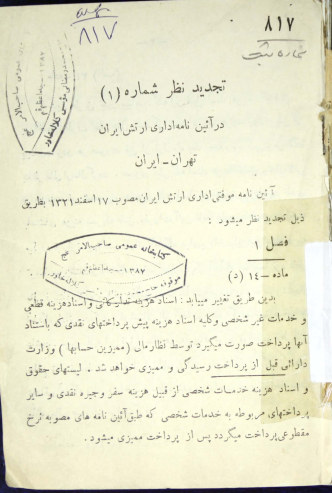 ۸۱۷
۸۱۷
شماره ثبت
تجدید نظر شماره (۱)
در آئین نامه اداری ارتش ایران
تهران - ایران
آئین نامه موقتی اداری ارتش ایران مصوب ۱۷ اسفند ۱۳۲۱ بطریق
ذیل تجدید نظر میشود :
فصل ۱
کتابخانه عمومی صاحب الامر عج
۱۳۸۷
ماده - ۱٤ (د)
بدین طریق تغییر مییابد : اسناد هزینه تدارکاتی و اسناد هزینه قطعی
و خدمات غیر شخصی و کلیه اسناد هزینه پیش پرداختهای نقدی که باستناد
آنها پرداخت صورت میگیرد توسط نظار مال (ممیزین حسابها) وزارت
دارائی قبل از پرداخت رسیدگی و ممیزی خواهد شد . لیستهای حقوق
و اسناد هزینه خدمات شخصی از قبیل هزینه سفر و جیره نقدی و سایر
پرداختهای مربوطه به خدمات شخصی که طبق آئین نامه های مصوبه نرخ
مقطوعی پرداخت میگردد پس از پرداخت ممیزی میشود .